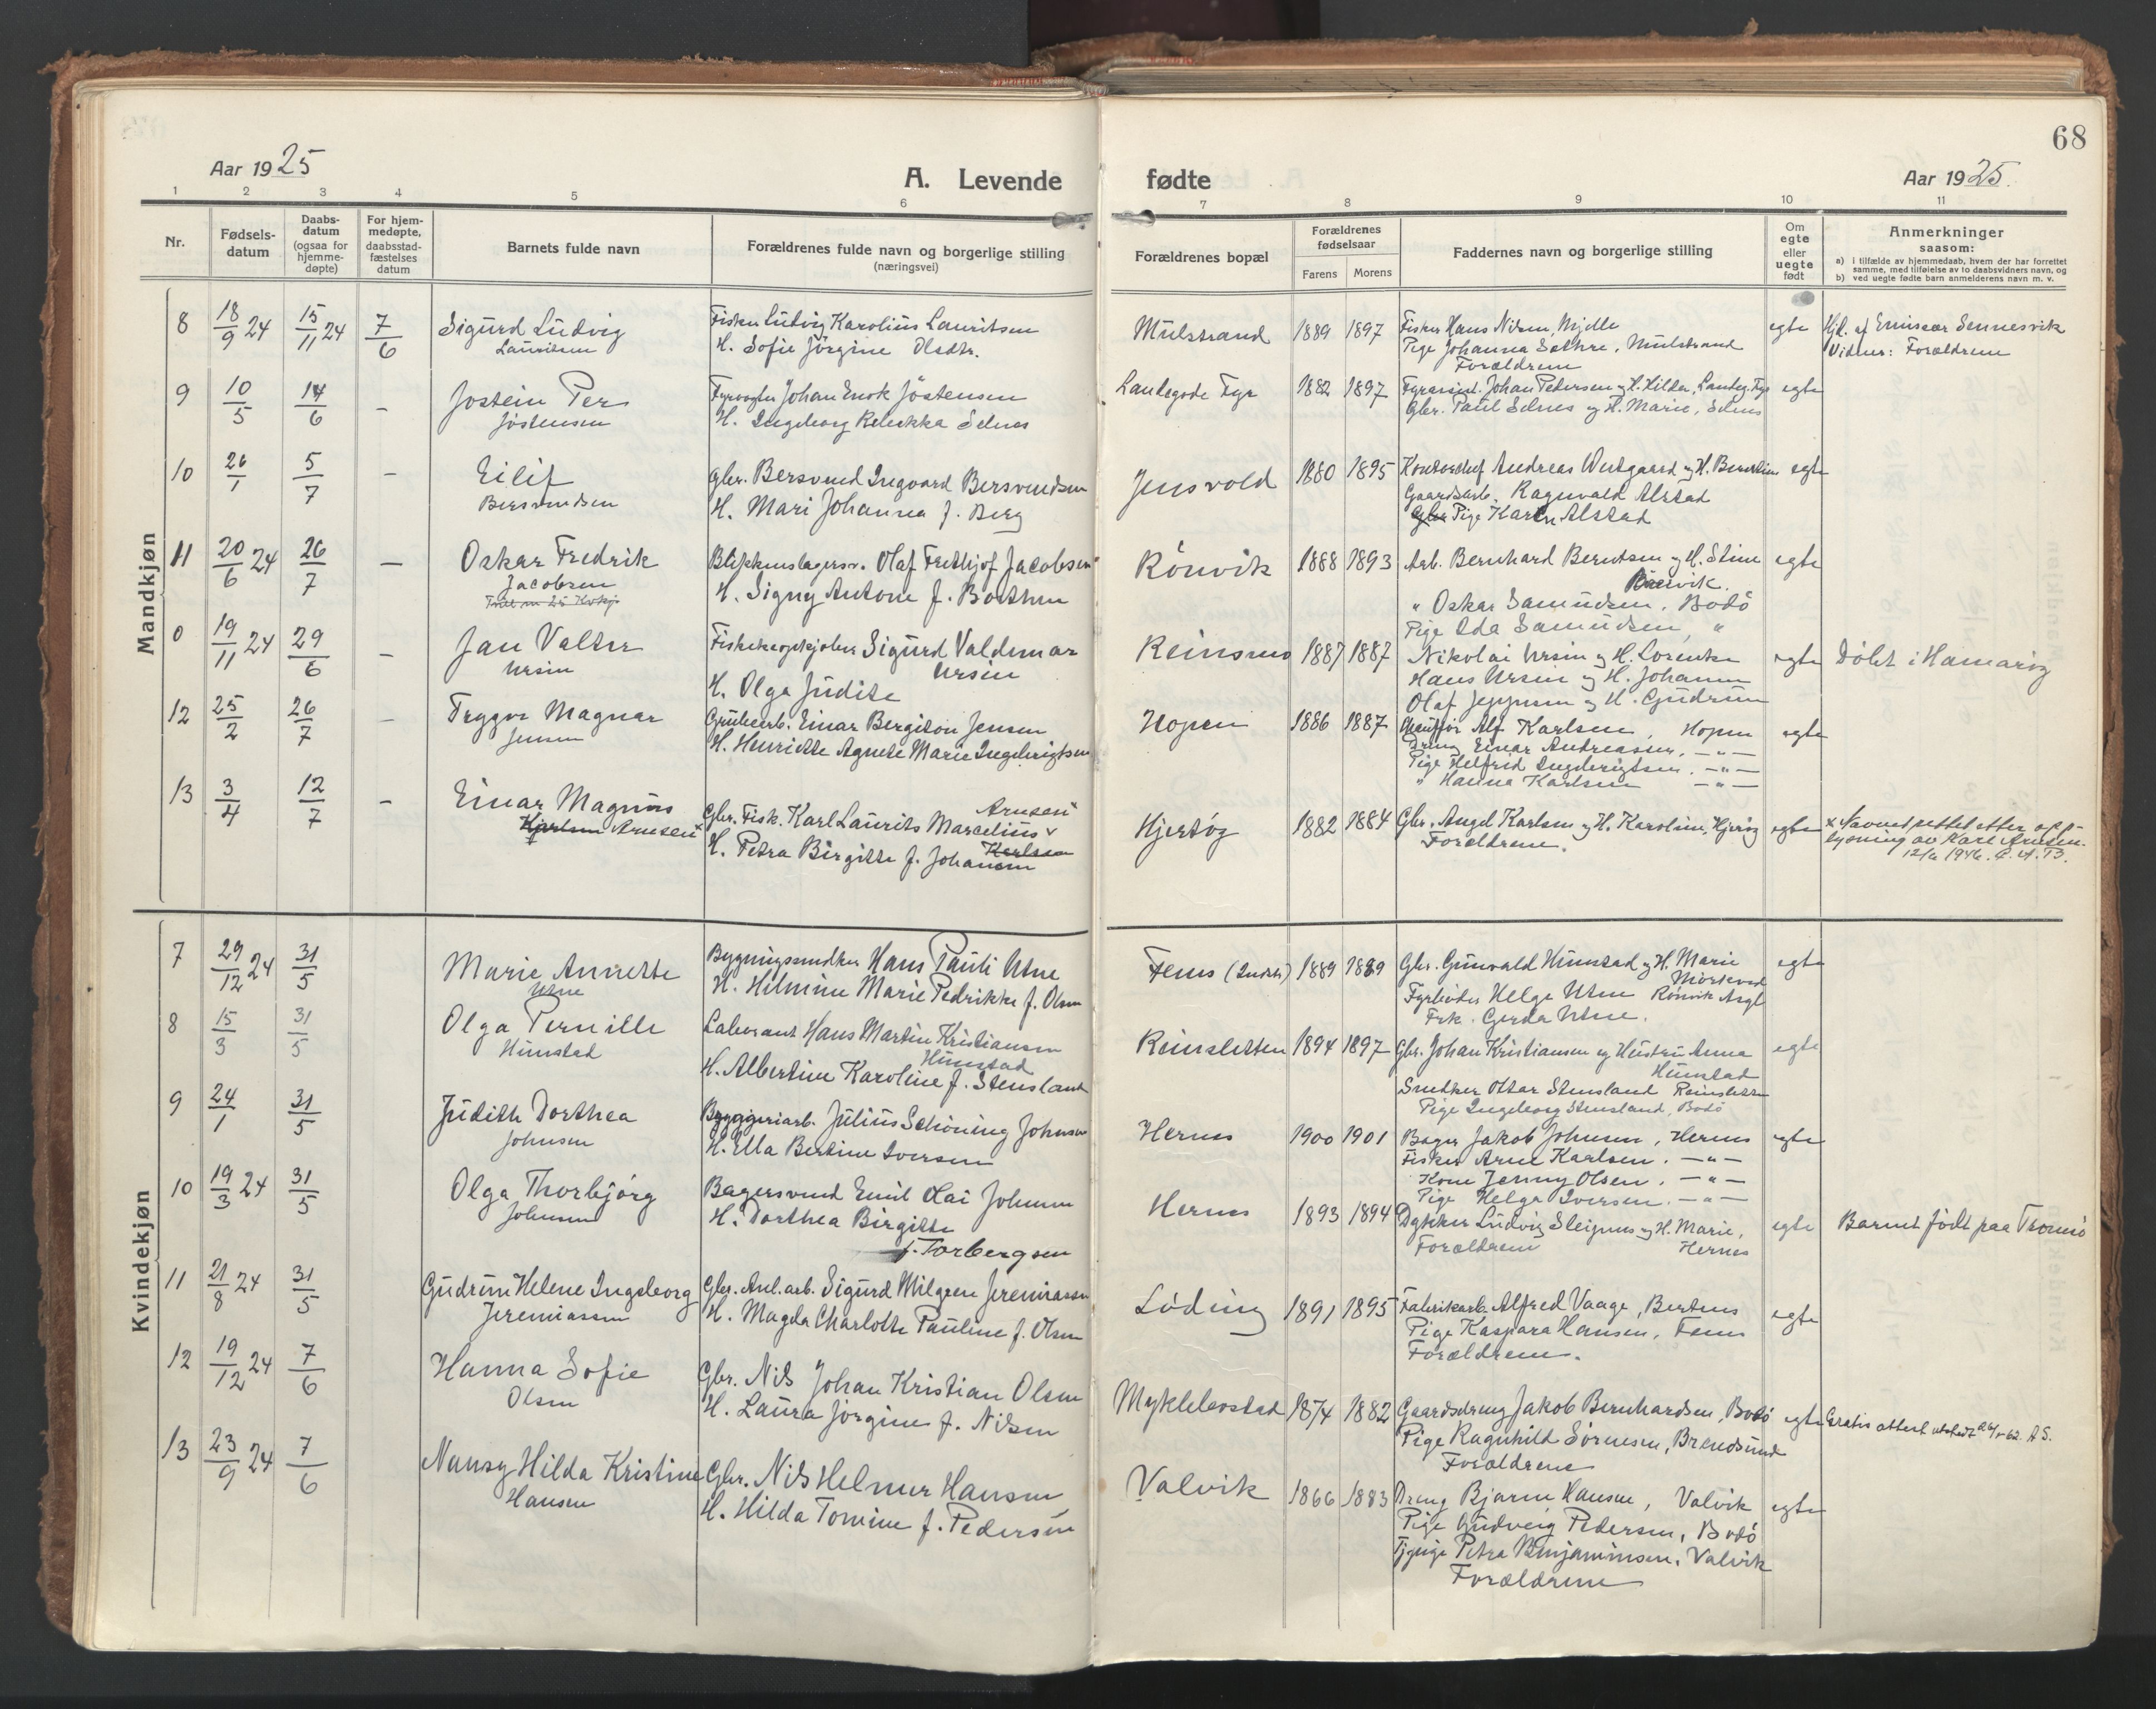 68
Aar 1925
A. Levende
fødte
Aar 1925.
1 2 3 4 5 6 7 8 9 10 11
Nr.
Fødsels-
datum
Daabs-
datum
(ogsaa for
hjemme-
døpte)
For hjem-
medøpte,
daabsstad-
fæstelses
datum
Barnets fulde navn
Forældrenes fulde navn og borgerlige stilling
(næringsvei)
Forældrenes bopæl
Forældrenes
fødselsaar
Farens Morens
Faddernes navn og borgerlige stilling
Om
egte
eller
uegte
født
Anmerkninger
saasom:
a) i tilfælde av hjemmedaab, hvem der har forrettet
samme, med tilføielse av to daabsvidners navn, og
b) ved uegte fødte barn anmelderens navn m. v.
Mandkjøn
8 18/9 24 15/11 24 7/6
Sigurd Ludvig
Lauritsen
Fisker Ludvig Karolius Lauritsen
H. Sofie Jörgine Olsdtr.
Mulstrand 1889 1897
Fisker Hans Nilsen, Mjelle
Pige Johanna Sæthre, Mulstrand
Forældrene
egte
Hjd. af Emissær Sennesvik
Vidner: Forældrene
9 10/5 14/6 -
Jostein Per
Jöstensen
Fyrvogter Johan Enok Jöstensen
H. Ingeborg Rebekka Selnes
Landegode Fyr 1882 1897
Fyrassist. Johan Pedersen og H. Hilda, Landeg. Fyr
Gbr. Paul Selnes og H. Marie, Selnes
egte
10 26/1 5/7 -
Eilif
Bersvendsen
Gbr. Bersvend Ingvard Bersvendsen
H. Mari Johanna f. Berg
Jensvold 1880 1895
Kontorchef Andreas Westgaard og H. Berntine
Gaardsarb. Ragnvald Alstad
Gbr Pige Karen Alstad
egte
11 20/6 24 26/7 -
Oskar Fredrik
Jacobsen
Blikkenslagersv. Olaf Frithjof Jacobsen
H. Signy Antone f. Bothen
Rönvik 1888 1893
Arb. Bernhard Berntsen og H. Stine
Rönvik.
" Oskar Samuelsen, Bodö
Pige Ida Samuelsen "
egte
0 19/11 24 29/6 -
Jan Valter
Ursin
Fiskeopkjöber Sigurd Valdemar
Ursin
H. Olga Judite
Reinsnes 1887 1887
Nikolai Ursin og H. Lorentze
Hans Ursin og H. Johanne
Olaf Jeppesen og H. Gudrun
egte
Döbt i Hamaröy
12 25/2 26/7 -
Trygve Magnar
Jensen
Grubearb. Einar Bergiton Jensen
H. Henriette Agnete Marie Ingebrigtsen
Hopen 1886 1887
Chaufför Alf Karlsen, Hopen
Dreng Einar Andreassen, - " -
Pige Helfrid Ingebrigtsen. - " -
" Hanna Karlsen - " -
egte
13 3/4 12/7 -
Einar Magnus
Karlsen Arntsen x
Arntsen
Gbr. Fisk. Karl Laurits Marcelius x
Karlsen
H. Petra Birgitte f. Johansen
Hjertöy 1882 1884
Gbr. Angel Karlsen og H. Karoline, Hjertöy
Forældrene.
egte
x Navnet rettet etter opp-
lysning av Kåre Arntsen.
12/6 1946. C.A.B.
Kvindekjøn
7 29/12 24 31/5
Marie Annette
Utne
Bygningssnedker Hans Pauli Utne
H. Hilmine Marie Fredrikke f. Olsen
Fenes 1889 1889
Gbr. Gunvald Hunstad og H. Marie
Mörkved
Fyrböder Helge Utne Rönvik Asyl
Frk. Gerda Utne.
egte
8 15/3 31/5
Olga Pernille
Hunstad
Laborant Hans Martin Kristiansen
Hunstad
H. Albertine Karoline f. Stensland
Reinsletten 1894 1897
Gbr. Johan Kristiansen og Hustru Anna
Hunstad
Snedker Ottar Stensland Reinsletten
Pige Ingeborg Stensland, Bodö
egte
9 24/1 31/5
Judith Dorthea
Johnsen
Bryggeriarb. Julius Schöning Johnsen
H. Ella Bertine Iversen
Hernes 1900 1901
Bager Jakob Johnsen, Hernes
Fisker Arne Karlsen. - " -
Kone Jenny Olsen. - " -
Pige Helga Iversen. - " -
egte
10 19/3 24 31/5
Olga Thorbjörg
Johnsen
Bagersvend Emil Olai Johnsen
H. Dorthea Birgitte
f. Torbergsen
Hernes 1893 1894
Dagtekker Ludvig Steignes og H. Marie,
Forældrene Hernes
egte
Barnet født paa Tromsö
11 21/8 24 31/5
Gudrun Helene Ingeborg
Jeremiassen
Gbr. Anl.arb. Sigurd Milgren Jeremiassen
H. Magda Charlotte Pauline f. Olsen
Löding 1891 1895
Fabrikarb. Alfred Vaage, Bertnes
Pige Kaspara Hansen, Fenes
Forældrene.
egte
12 19/12 24 7/6
Hanna Sofie
Olsen
Gbr. Nils Johan Kristian Olsen
H. Laura Jörgine f. Nilsen
Myklebostad 1874 1882
Gaardsdreng Jakob Bernhardsen, Bodö
Pige Ragnhild Sörensen, Brendsund
Forældrene
egte
Gratis attest utstedt 62. A S.
13 23/9 24 7/6
Nansy Hilda Kristine
Hansen
Gbr. Nils Helmer Hansen
H. Hilda Tomine f. Pedersen
Valvik 1866 1883
Dreng Bjarne Hansen, Valvik
Pige Gudveig Pedersen, Bodö
Tjpige Petra Benjaminsen, Valvik
Forældrene
egte